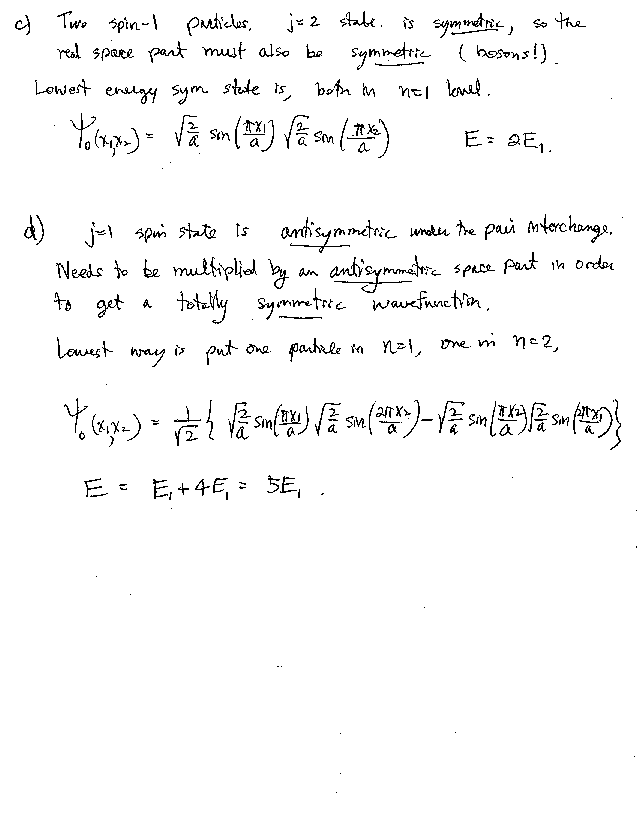 c) Two spin-1 particles. j=2 state is symmetric, so the
real space part must also be symmetric (bosons!).
Lowest energy sym state is, both in n=1 level.
Ψ₀(x₁,x₂) = √(2/a) sin(πx₁/a) √(2/a) sin(πx₂/a)    E = 2E₁.
d) j=1 spin state is antisymmetric under the pair interchange.
Needs to be multiplied by an antisymmetric space part in order
to get a totally symmetric wavefunction.
Lowest way is put one particle in n=1, one in n=2,
Ψ₀(x₁,x₂) = 1/√2 { √(2/a) sin(πx₁/a) √(2/a) sin(2πx₂/a) − √(2/a) sin(πx₂/a) √(2/a) sin(2πx₁/a) }
E = E₁ + 4E₁ = 5E₁.